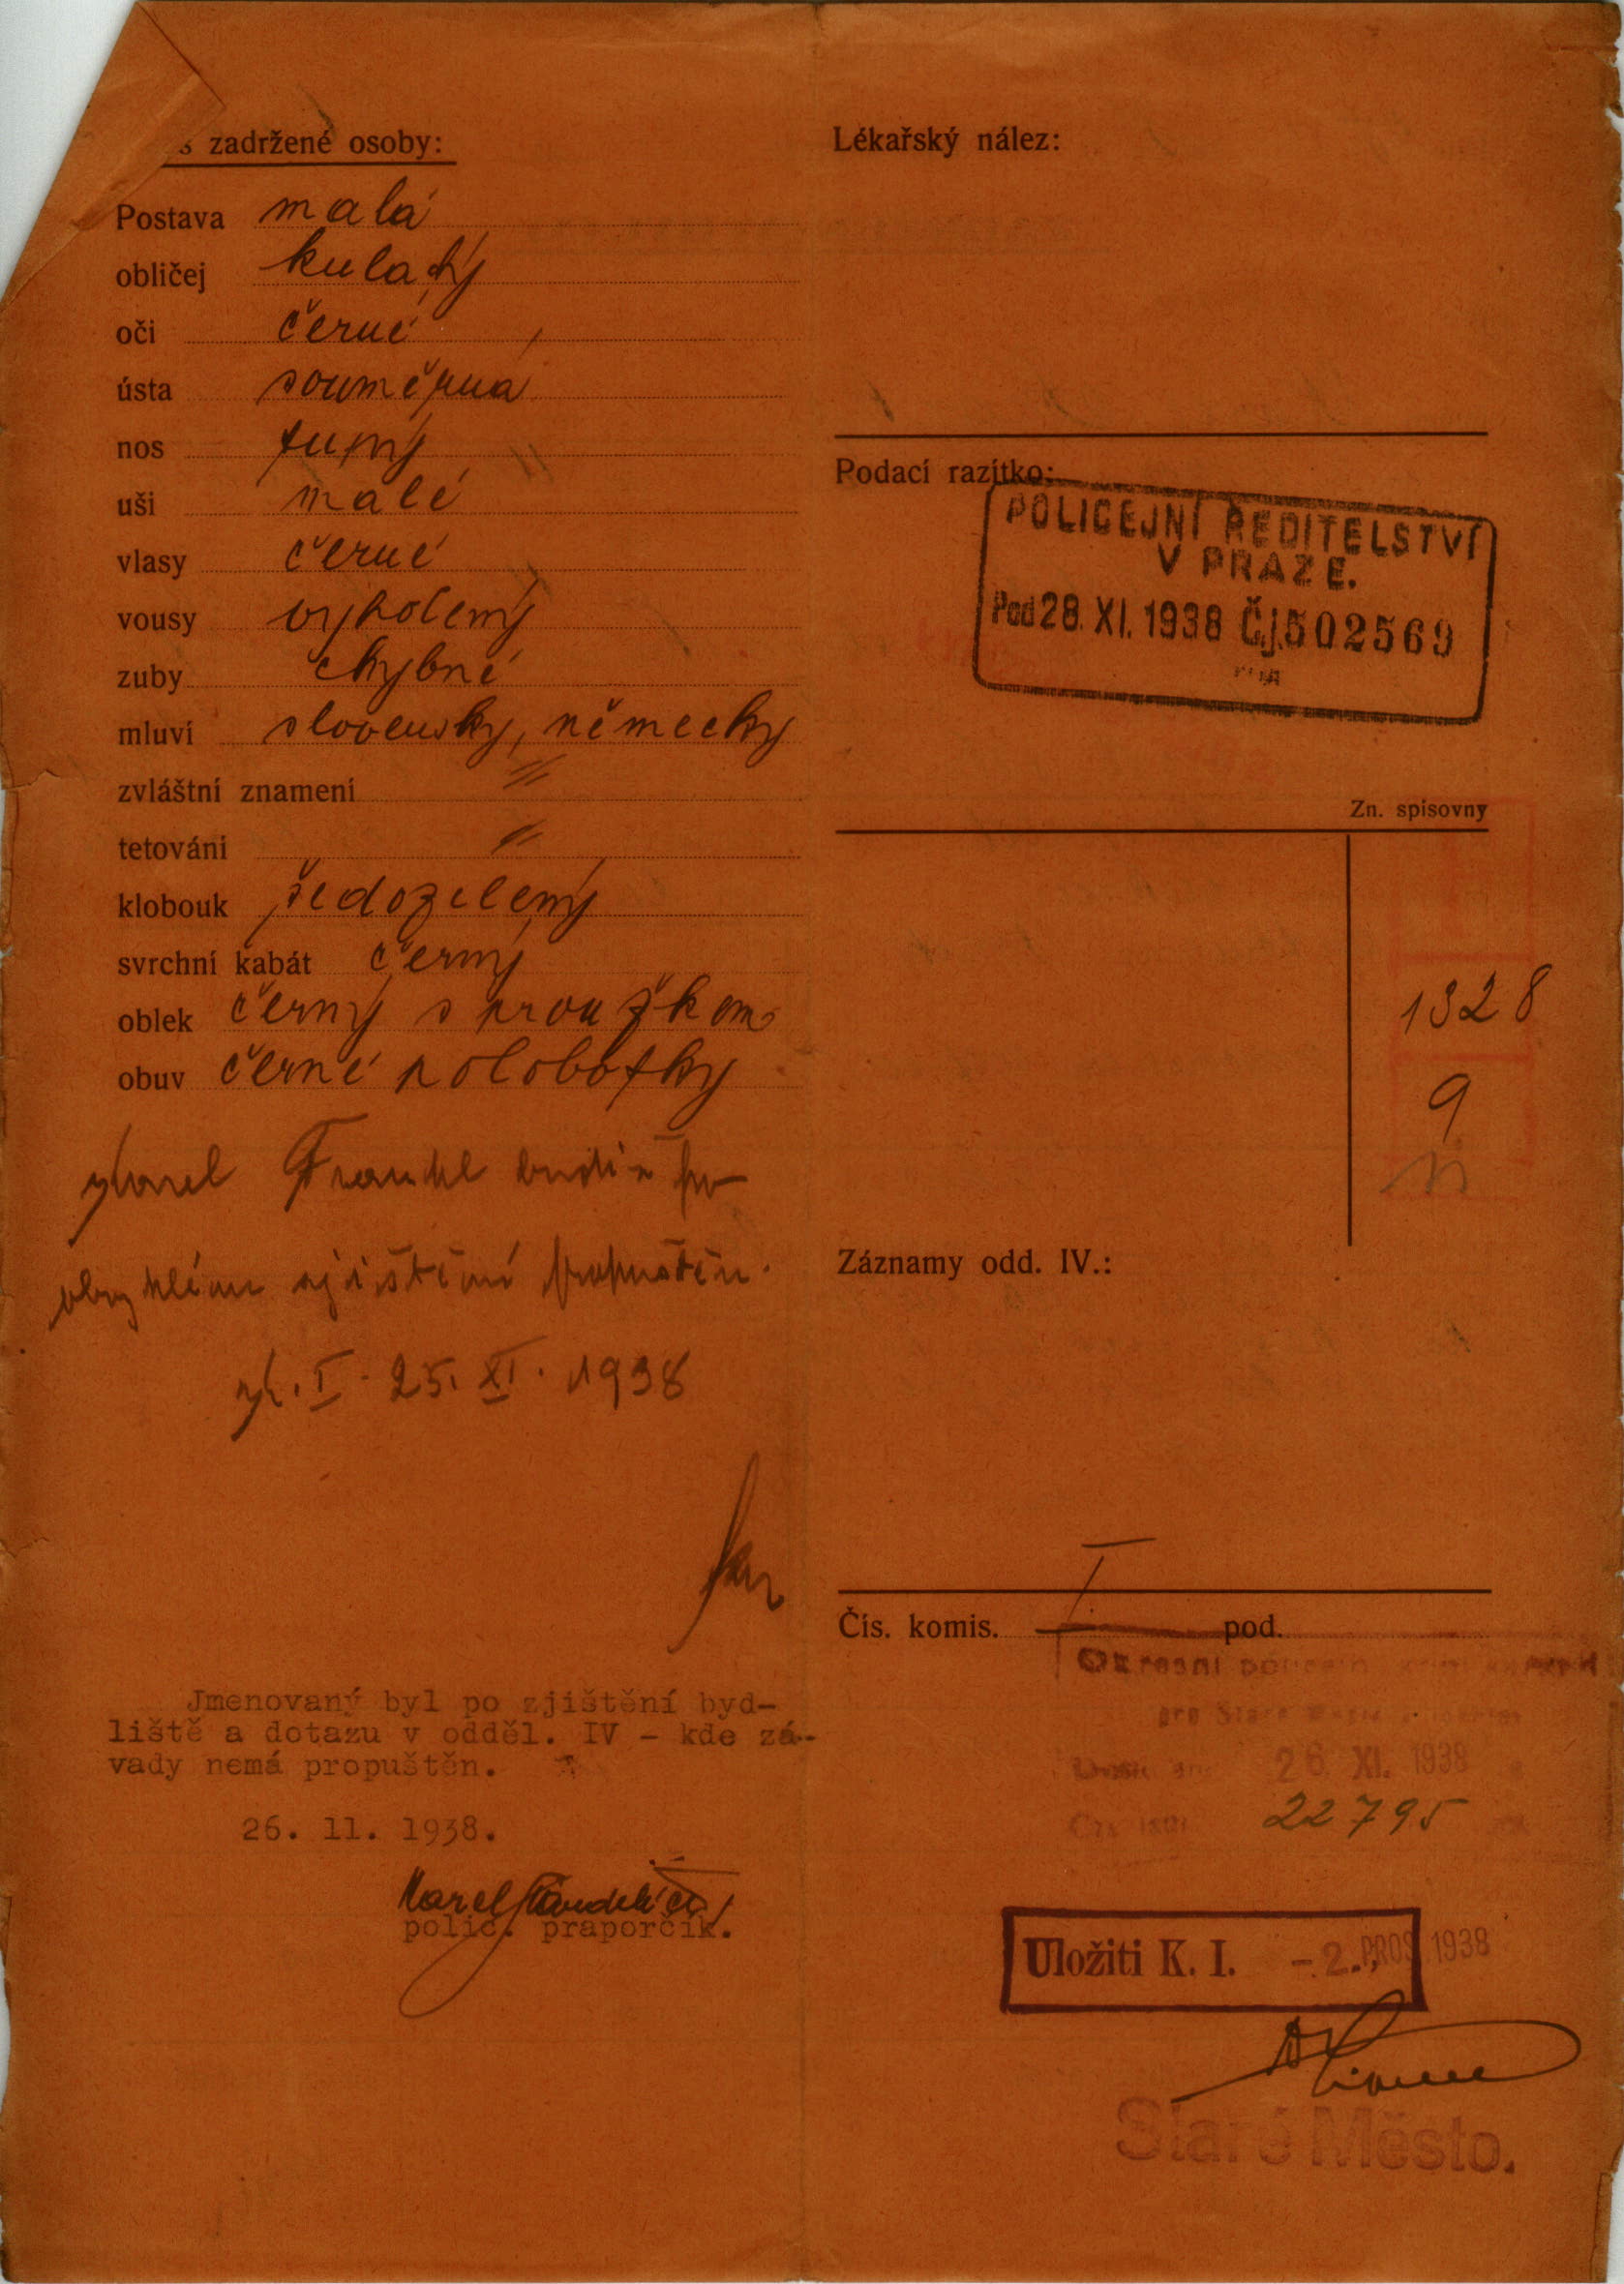 zadržené osoby:
Postava malá
obličej kulatý
oči černé
ústa souměrná
nos tupý
uši malé
vlasy černé
vousy vyholený
zuby chybné
mluví slovensky, německy
zvláštní znamení "
tetování "
klobouk šedozelený
svrchní kabát černý
oblek černý s proužkem
obuv černé polobotky
Karel Fraenkl budiž po
obvyklém zjištění propuštěn.
I. 25. XI. 1938
Jmenovaný byl po zjištění byd-
liště a dotazu v odděl. IV - kde zá-
vady nemá propuštěn.
26. 11. 1938.
Karel
polic. praporčík.
Lékařský nález:
Podací razítko:
POLICEJNÍ ŘEDITELSTVÍ
V PRAZE.
Pod 28. XI. 1938 Č.j. 502569
Zn. spisovny
1328
9
Záznamy odd. IV.:
Čís. komis. I pod.
Okresní policejní
pro Staré Město
26. XI. 1938
22795
Uložiti K. I. - 2. PROS. 1938
Staré Město.